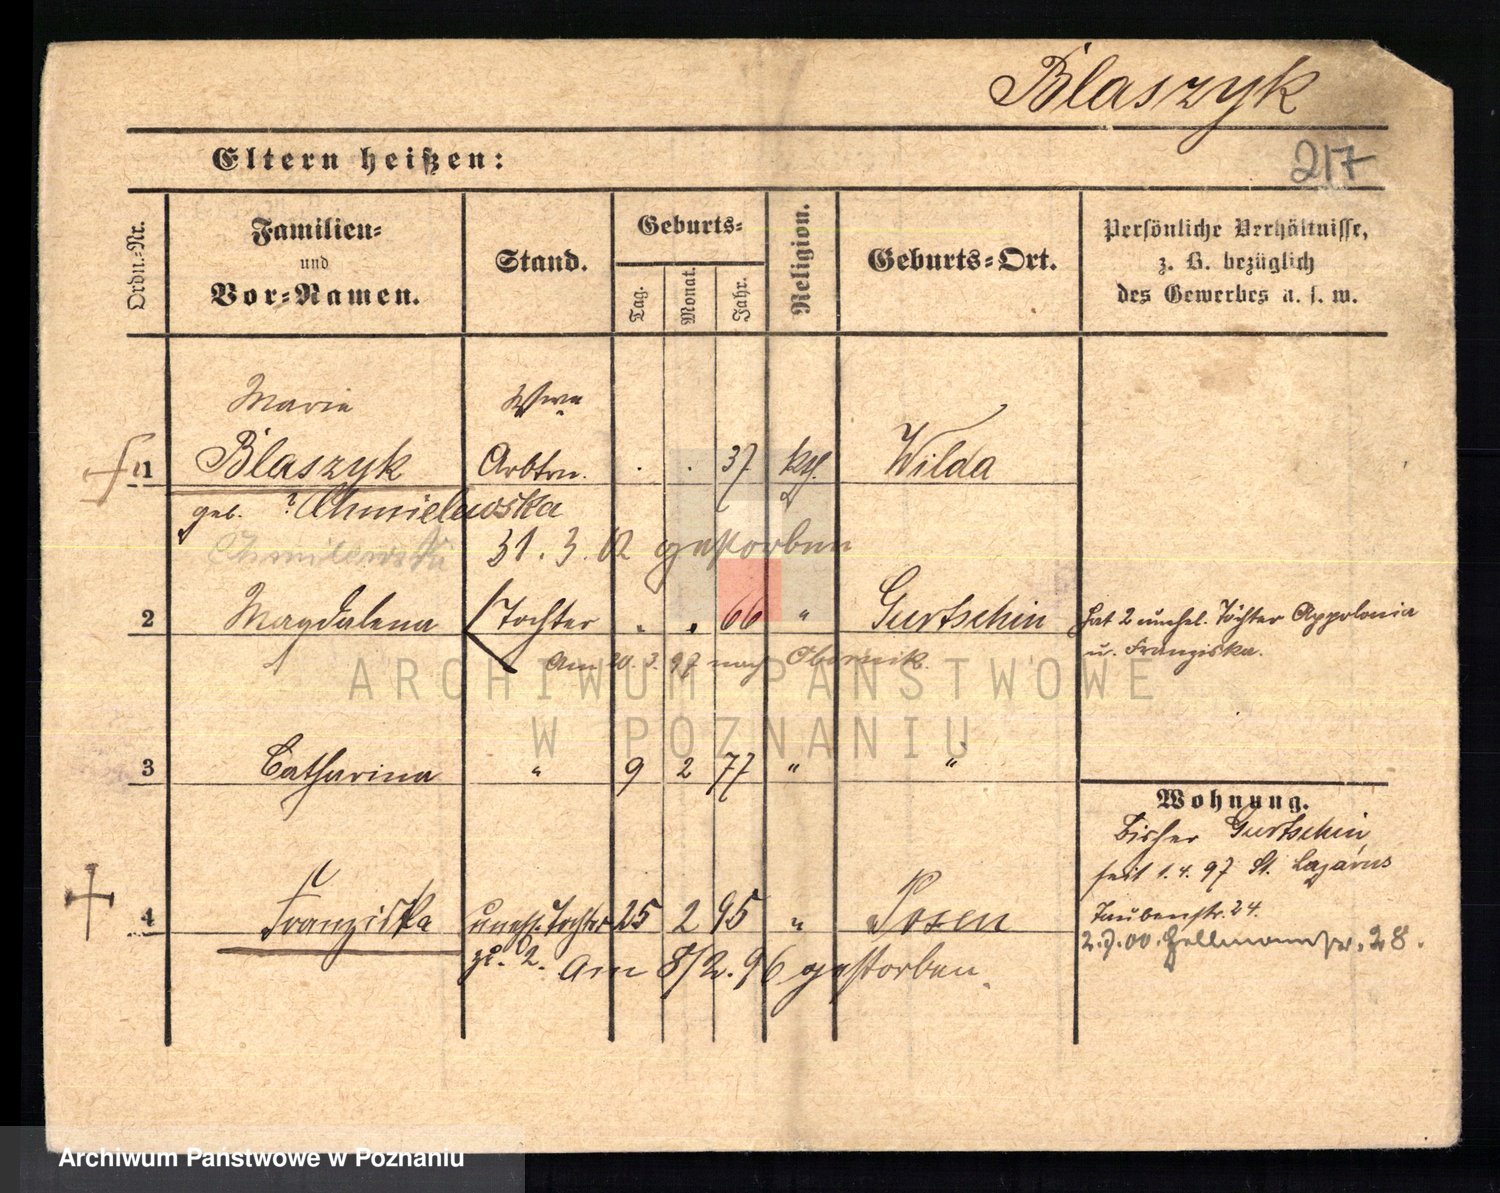 Blaszyk
Eltern heißen:
217
Ordn.-Nr.
Familien- und Vor-Namen.
Stand.
Geburts-
Tag. Monat. Jahr.
Religion.
Geburts-Ort.
Persönliche Verhältnisse,
z. B. bezüglich
des Gewerbes u. s. w.
Marie Wwe
1 Blaszyk Arbtrn. . . 37 kth. Wilda
geb. ? Chmielewska
Chmilewska 31. 3. 02 gestorben
2 Magdalena Tochter " . 66 " Gurtschin
Hat 2 unehel. Töchter Appolonia
u. Franziska.
Am 20. 3. 97 nach Obornik.
ARCHIWUM PAŃSTWOWE
W POZNANIU
3 Catharina " 9 2 77 " "
Wohnung.
Bisher Gurtschin
seit 1. 4. 97 St. Lazarus
Taubenstr. 24.
4 Franziska unehl. Tochter 25 2 95 " Posen
2. 7. 00. Hellmannstr. 28.
zu 2. Am 8/2. 96 gestorben.
Archiwum Państwowe w Poznaniu